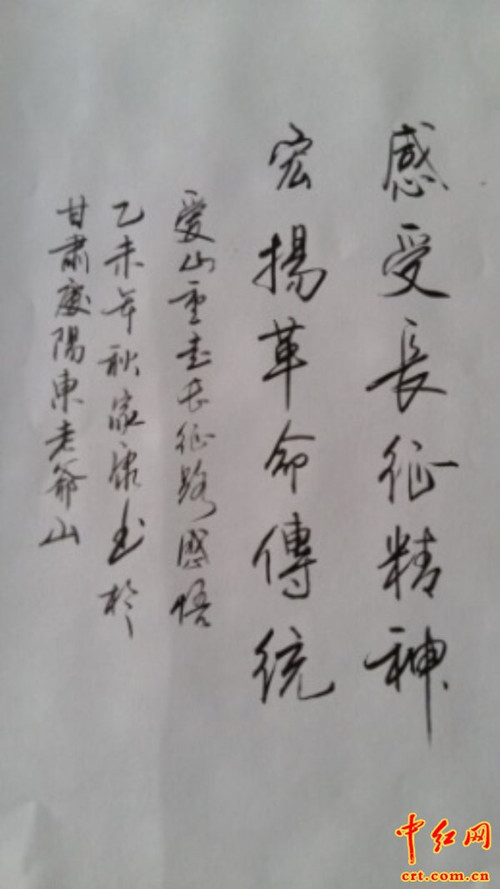 感受長征精神
宏揚革命傳統
爱山重走长征路感悟
乙未年秋家康书於
甘肅慶陽東老爺山
中红网
crt.com.cn